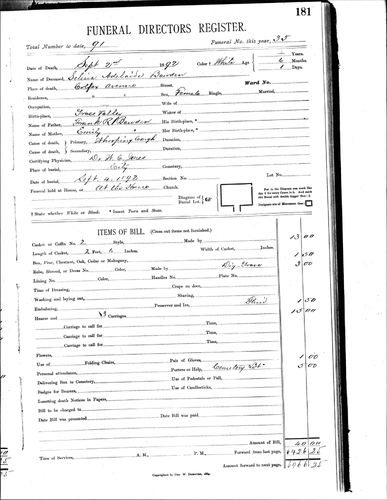 181
FUNERAL DIRECTORS REGISTER.
Total Number to date, 91 Funeral No. this year, 35
Date of Death, Sept 2nd 1892 Color † White Age Years.
6 Months
1 Days.
Name of Deceased, Adelaide
Place of death, Colfax avenue Street, Ward No.
Residence, " " Sex, Female Single, Married,
Occupation, Wife of
Birth-place, Widow of
Name of Father, Frank His Birthplace, *
Name of Mother, Emily Her Birthplace, *
Cause of death, Primary, Whooping Cough Duration,
Cause of death, Secondary, Duration,
Certifying Physician, Dr. W. C. Jones
Place of burial, City Cemetery,
Date of burial, Sept 4, 1892 Section No.
Funeral held at House, or At the House Church.
Diagram of Burial Lot,
Per in the Diagram can mark the
† State whether White or Black. * Insert Town and State.
ITEMS OF BILL. (Cross out items not furnished.)
Casket or Coffin No. 2 Style, Made by 13 00
Length of Casket, 2 Feet, 6 Inches. Width of Casket, Inches. 1 50
Box, Pine, Chestnut, Oak, Cedar or Mahogany, Dig Grave 3 00
Robe, Shroud, or Dress No. Color, Made by
Lining No. Color, Handles No. Plate No.
Time of Dressing, Crape on door,
Washing and laying out, Shaving, 1 50
Embalming, Preserver and Ice, 15 00
Hearse and 3 Carriages.
Carriage to call for Time,
Carriage to call for Time,
Carriage to call for Time,
Carriage to call for Time,
Flowers, Pair of Gloves, 1 00
Use of Folding Chairs, Porters or Help, Cemetery Lot 5 00
Personal attendance, Use of Pedestals or Pall,
Delivering Box to Cemetery, Use of Candlesticks,
Badges for Bearers,
Inserting death Notices in Papers,
Bill to be charged to
Date Bill was presented Date Bill was paid
Amount of Bill, 40 00
Time of Services, A. M., P. M. Forward from last page,
Amount forward to next page,
Copyrighted by